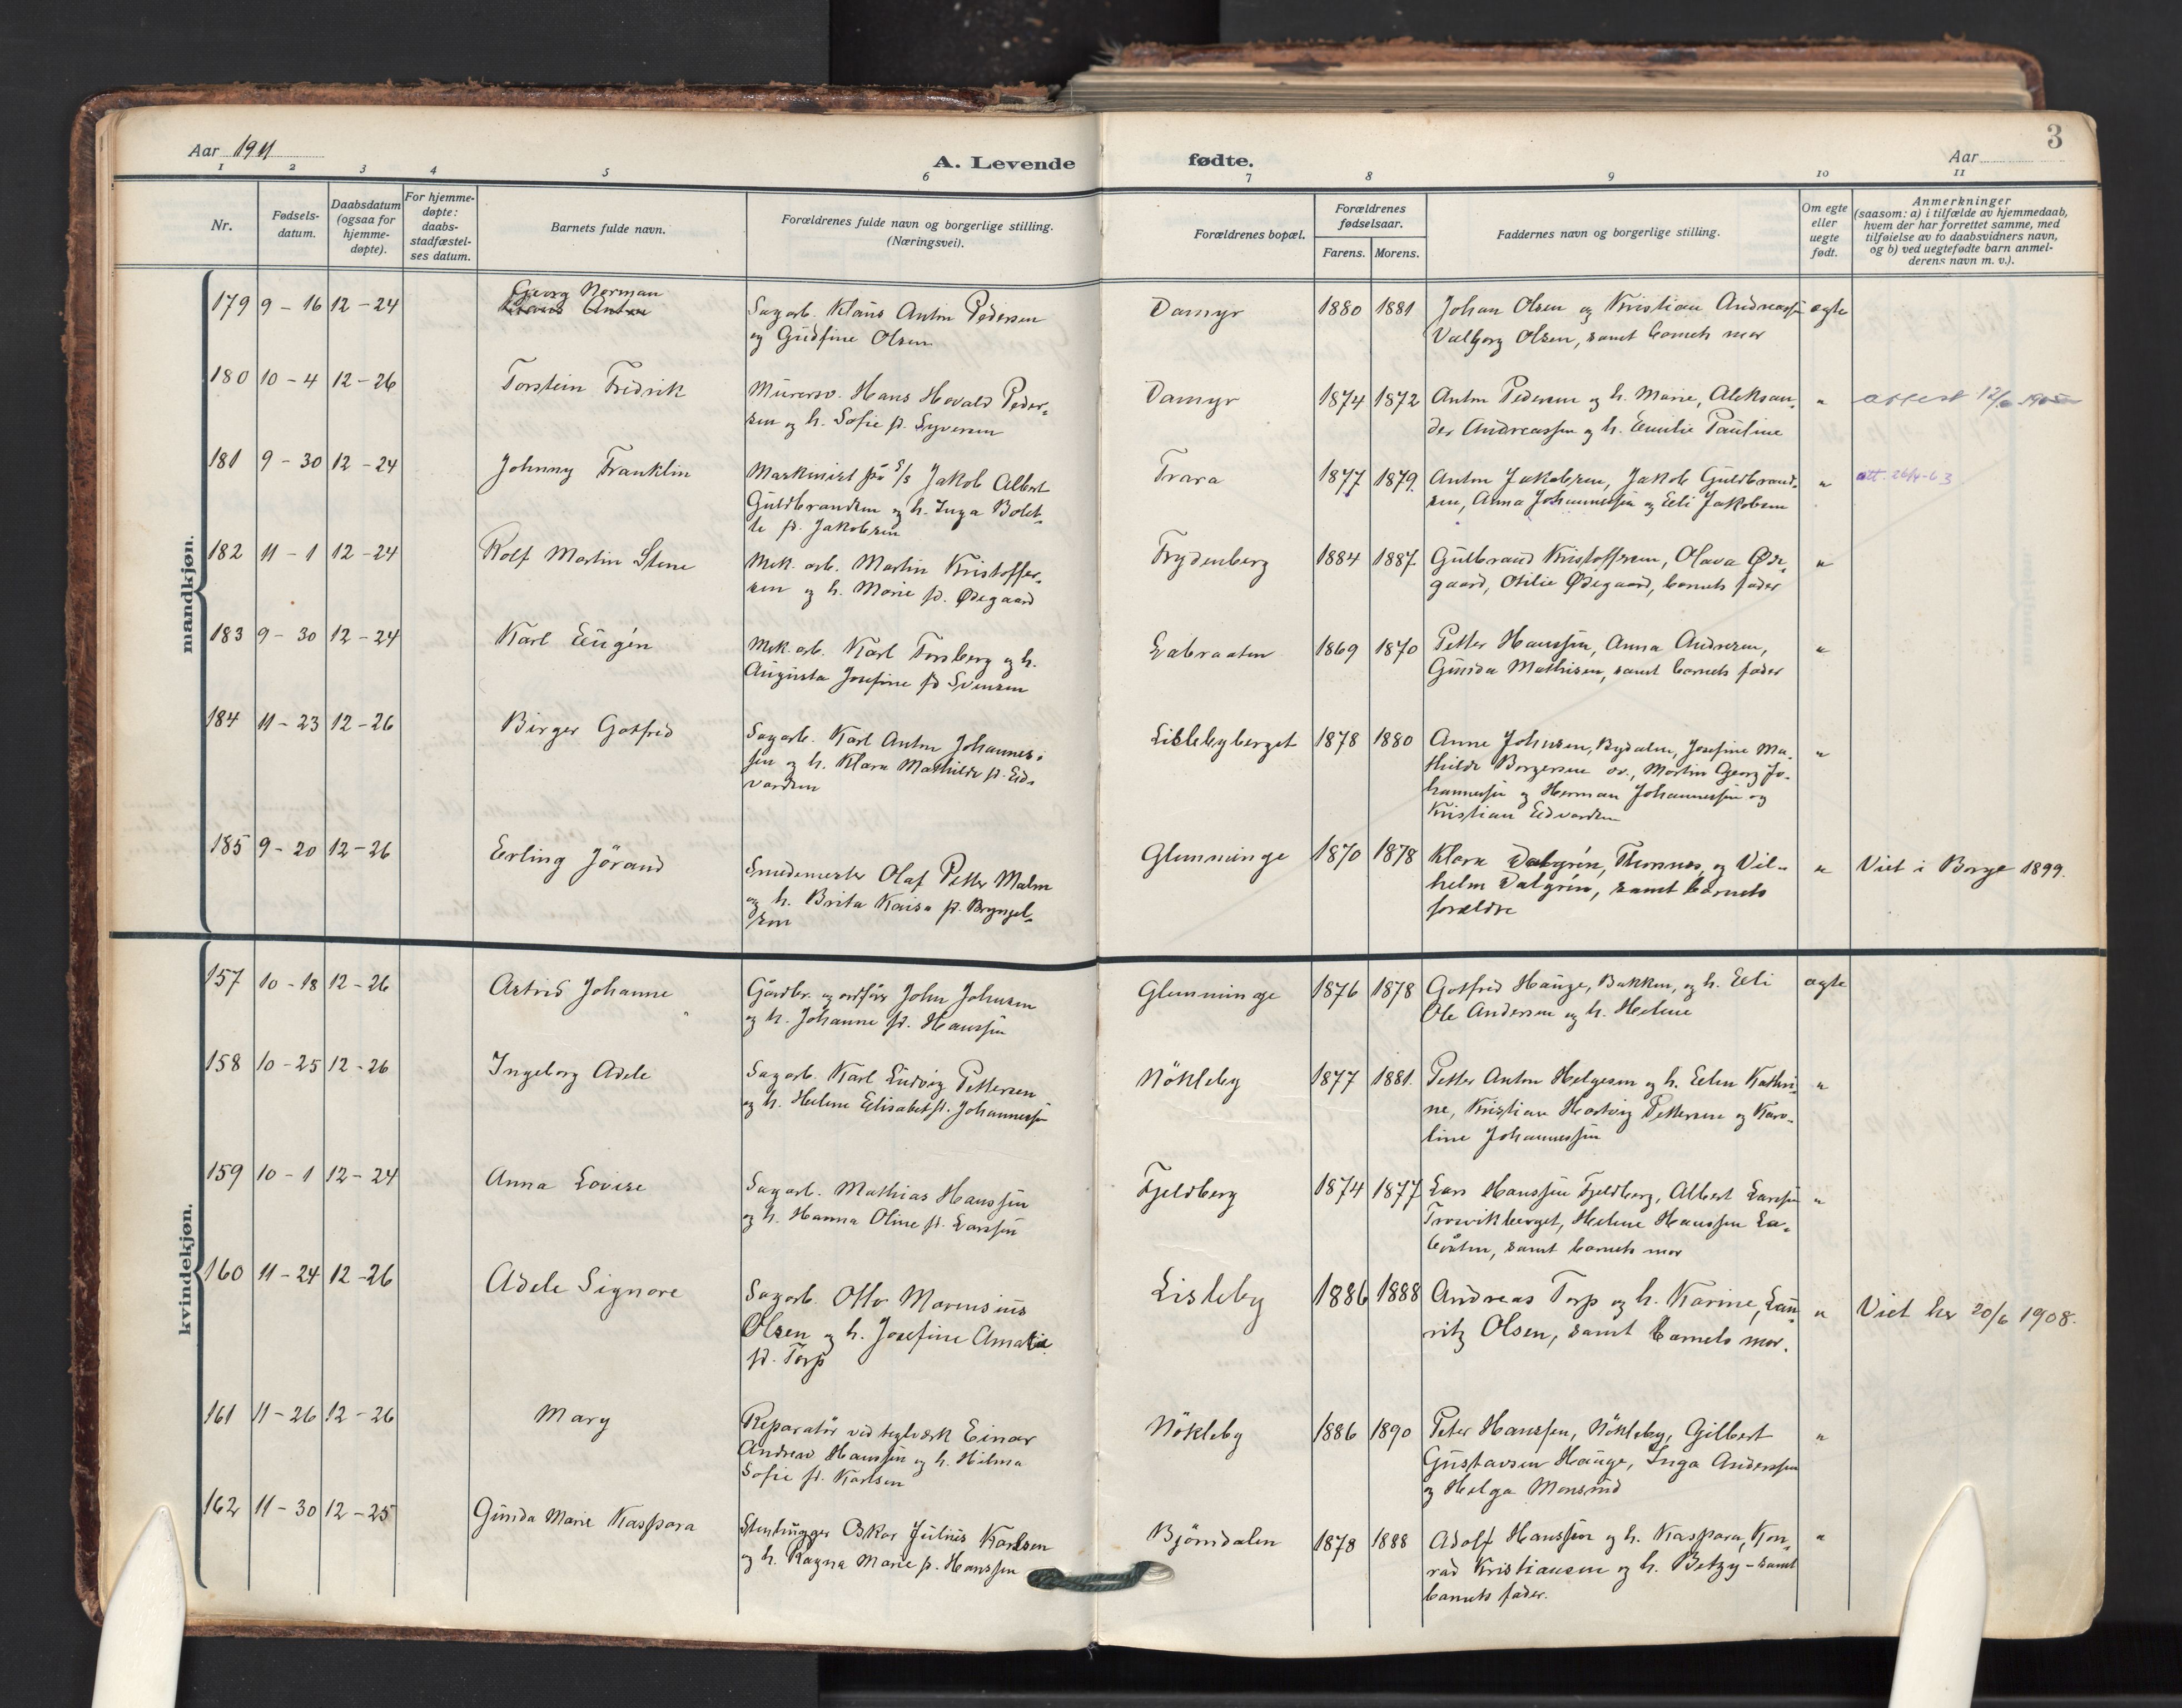 3
Aar 1911
A. Levende fødte.
Aar
1 2 3 4 5 6 7 8 9 10 11
Nr.
Fødsels-
datum.
Daabsdatum
(ogsaa for
hjemme-
døpte).
For hjemme-
døpte:
daabs-
stadfæstel-
ses datum.
Barnets fulde navn.
Forældrenes fulde navn og borgerlige stilling.
(Næringsvei).
Forældrenes bopæl.
Forældrenes
fødselsaar.
Farens. Morens.
Faddernes navn og borgerlige stilling.
Om egte
eller
uegte
født.
Anmerkninger
(saasom: a) i tilfælde av hjemmedaab,
hvem der har forrettet samme, med
tilføielse av to daabsvidners navn,
og b) ved uegtefødte barn anmel-
derens navn m. v.).
mandkjøn.
179 9 - 16 12 - 24
Georg Norman
Klaus Anton
Sagarb. Klaus Anton Pedersen
og Gudfine Olsen
Damyr 1880 1881
Johan Olsen og Kristian Andreassen
Valborg Olsen, samt barnets mor
egte
180 10 - 4 12 - 26
Torstein Fredrik
Murersv. Hans Hovald Peder-
sen og h. Sofie f. Syversen
Damyr 1874 1872
Anton Pedersen og h. Marie, Aleksan-
der Andreassen og h. Emilie Pauline
"
attest
181 9 - 30 12 - 24
Johnny Franklin
Maskinist på S/S Jakob Albert
Guldbrandsen og h. Inga Bolet-
te f. Jakobsen
Trara 1877 1879.
Anton Jakobsen, Jakob Guldbrand-
sen, Anna Johannessen og Eli Jakobsen
"
att. 26/4-63
182 11 - 1 12 - 24
Rolf Martin Stene
Mek. arb. Martin Kristoffer-
sen og h. Marie f. Ødegaard
Frydenberg 1884 1887
Gulbrand Kristoffersen, Olava Øde-
gaard, Otilie Ødegaard, barnets fader
"
183 9 - 30 12 - 24
Karl Eugén
Mek. arb. Karl Forsberg og h.
Augusta Josefine f. Svensen
Labraaten 1869 1870
Petter Hanssen, Anna Andresen,
Gunda Mathisen, samt barnets fader
"
184 11 - 23 12 - 26
Birger Gotfred
Sagarb. Karl Anton Johannes-
sen og h. Klara Mathilde f. Ed-
vardsen
Lislebyberget 1878 1880
Anne Johnsen, Bydalen, Josefine Ma-
thilde Borgersen ov., Martin Georg Jo-
hannessen og Herman Johannessen og
Kristian Edvardsen
"
185 9 - 20 12 - 26
Erling Jörand
Smedemester Olaf Petter Malm
og h. Brita Kaisa f. Bryngel-
son
Glemminge 1870 1878
Klara Dalgrén, Thomas, og Vil-
helm Dalgrén, samt barnets
forældre
"
Viet i Borge 1899.
kvindekjøn.
157 10 - 18 12 - 26
Astrid Johanne
Gårdbr. og ordfør John Johnsen
og h. Johanne f. Hanssen
Glemminge 1876 1878
Gotfred Hauge, Bakken, og h. Eli
Ole Andersen og h. Helene
egte
158 10 - 25 12 - 26
Ingeborg Adele
Sagarb. Karl Ludvig Pettersen
og h. Helene Elisabet f. Johannessen
Nökleby 1877 1881.
Petter Anton Helgesen og h. Elen Kathri-
ne, Kristian Hartvig Pettersen og Karo-
line Johannessen
"
159 10 - 1 12 - 24
Anna Lovise
Sagarb. Mathias Hanssen
og h. Hanna Oline f. Larssen
Fjeldberg 1874 1877
Lars Hanssen Fjeldberg, Albert Larssen
Trosvikberget, Helene Hanssen La-
bråten, samt barnets mor
"
160 11 - 24 12 - 26
Adele Signore
Sagarb. Otto Marensius
Olsen og h. Josefine Amalie
f. Torp
Lisleby 1886 1888
Andreas Torp og h. Karine, Lau-
ritz Olsen, samt barnets mor.
"
Viet her 20/6 1908.
161 11 - 26 12 - 26
Mary
Reparatör ved teglverk Einar
Andreas Hanssen og h. Hilma
Sofie f. Karlsen
Nökleby 1886 1890
Peter Hanssen, Nökleby, Gilbert
Gustavsen Hauge, Inga Anderssen
og Helga Monsrud
"
162 11 - 30 12 - 25
Gunda Marie Kaspara
Stenhugger Oskar Julius Karlsen
og h. Ragna Marie f. Hanssen
Björndalen 1878 1888
Adolf Hanssen og h. Kaspara, Kon-
rad Kristiansen og h. Betzy - samt
barnets fader.
"